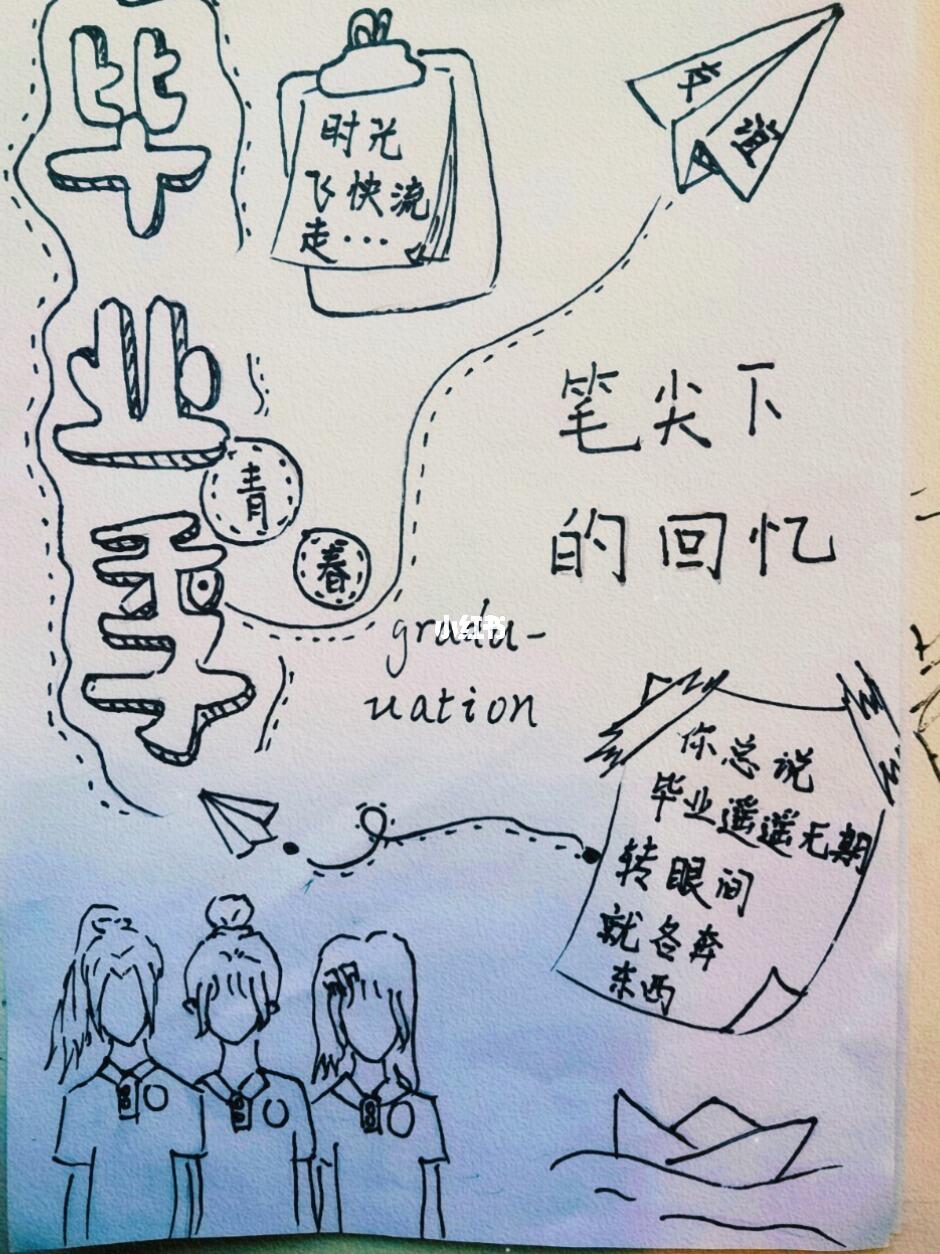 毕
业
季
时光
飞快流
走...
友谊
笔尖下
的回忆
青
春
小红书
gradu-
uation
你总说
毕业遥遥无期
转眼间
就各奔
东西